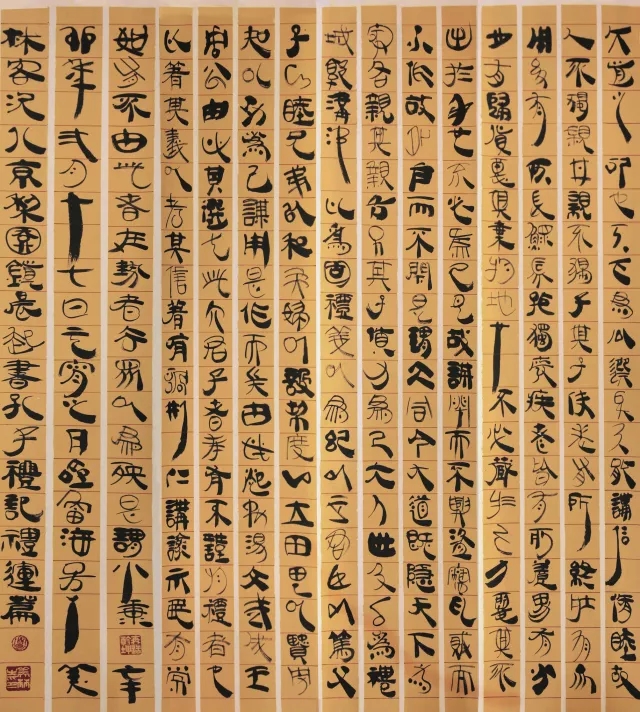 大道之行也天下為公選賢與能講信修睦故
人不獨親其親不獨子其子使老有所終壯有所
用幼有所長鰥寡孤獨廢疾者皆有所養男有分
女有歸貨惡其棄於地十不必藏於己力惡其不
出於身也不必為己是故謀閉而不興盜竊亂賊而
不作故外戶而不閉是謂大同今大道既隱天下為
家各親其親各子其子貨力為己大人世及以為禮
城郭溝池以為固禮義以為紀以正君臣以篤父
子以睦兄弟以和夫婦以設制度以立田里以賢勇
知以功為己謀用是作而兵由此起禹湯文武成王
周公由此其選也此六君子者未有不謹於禮者也
以著其義以考其信著有過刑仁講讓示民有常
如有不由此者在勢者去眾以為殃是謂小康辛
卯年弍月十七日元宵之月海美
林客京梨園書孔子禮記禮運篇